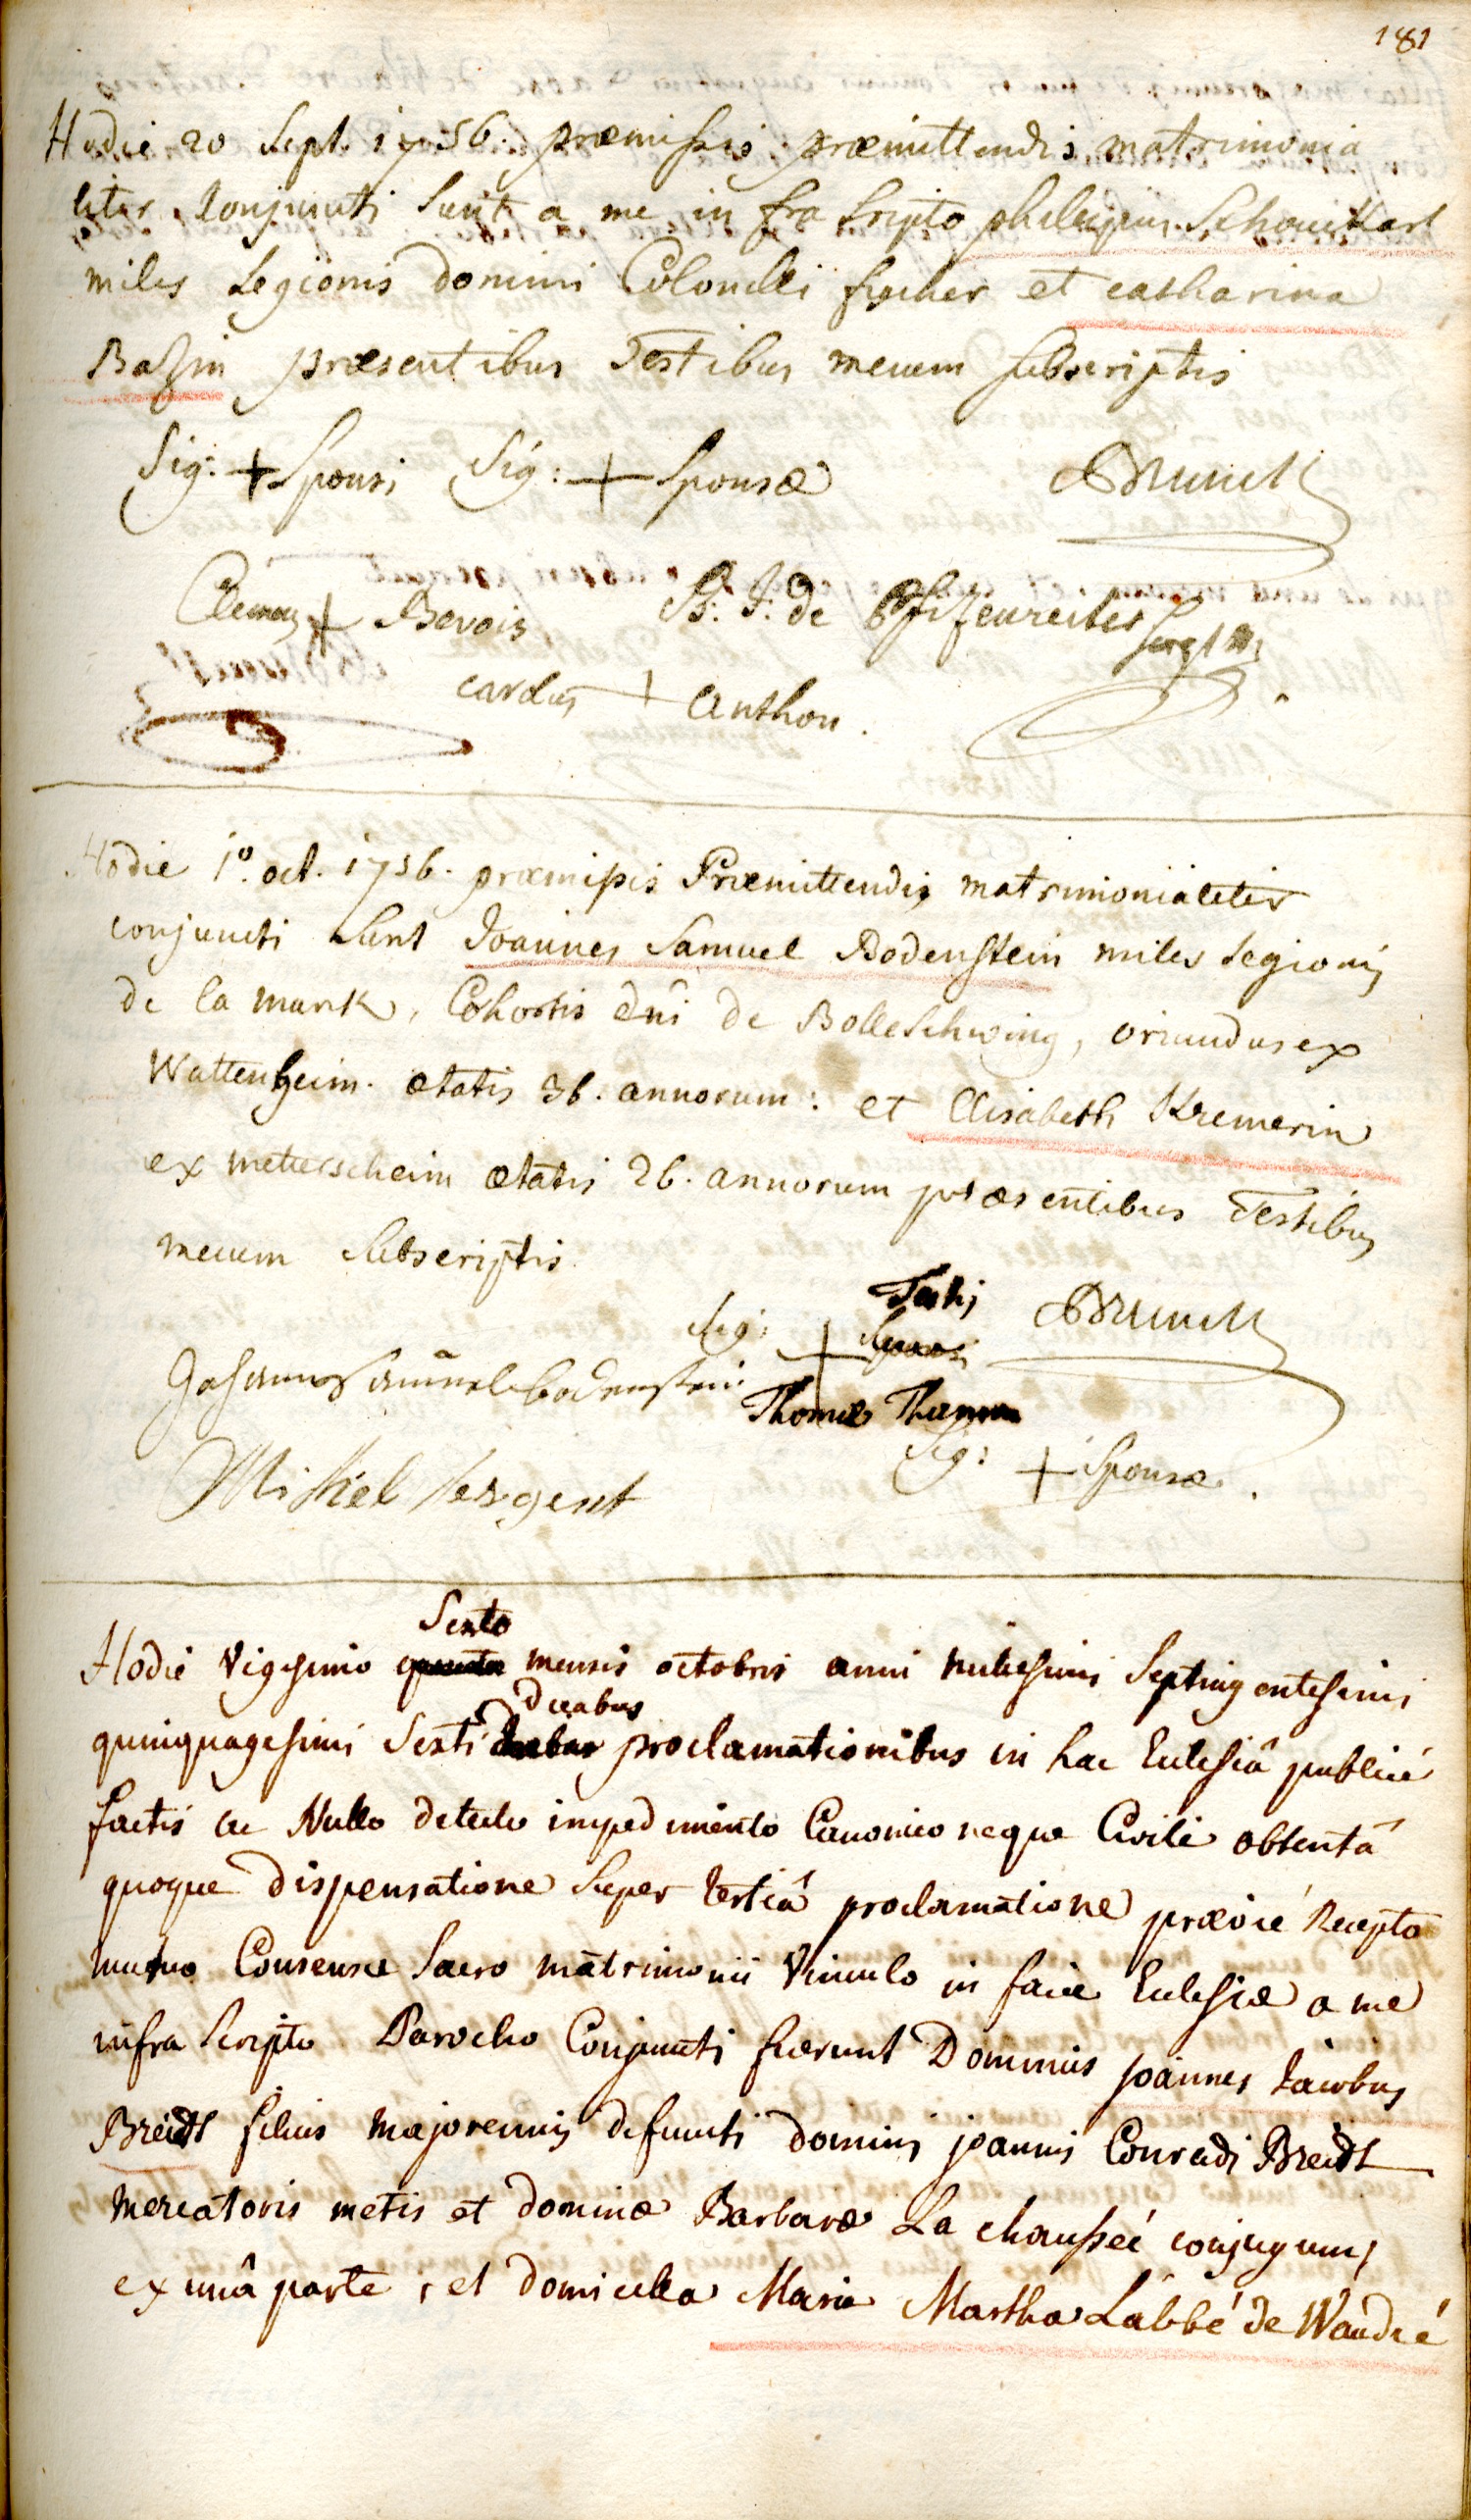 181
Hodie 20 Sept. 1756. præmissis præmittendis matrimonia
liter Conjuncti sunt a me in fra scripto philippus Schouittart
miles Legionis domini Colonelli fischer et catharina
Bassin præsentibus Testibus mecum subscriptis
Sig: + Sponsi Sig: + Sponsæ
Clemens + Bevois
Sergt
carolus + Anthon.
Hodie 1º. oct. 1756. præmissis Præmittendis matrimonialiter
conjuncti sunt Joannes Samuel Bodenstein miles Legionis
de la Mark, Cohortis dni de Bolleschwing, oriundus ex
Wattenheim. ætatis 36. annorum: et Elisabeth Kremerin
ex metterscheim ætatis 26. annorum præsentibus Testibus
mecum subscriptis.
Sig: + Testis Sponsi
Johannes Samuel bodenstein
Thomæ
Michel sergent
Sig: + Sponsæ.
Sexto
Hodie Vigesimo quinto mensis octobris anni millesimi Septingentesimi
duabus
quinquagesimi Sexti duabus proclamationibus in hac Ecclesiâ publicé
factis ac Nullo detecto impedimento Canonico neque Civili obtentâ
quoque dispensatione super tertiâ proclamatione prævié Recepto
mutuo Consensu Sacro matrimonii Vinculo in facie Ecclesiæ a me
infra Scripto Parocho Conjuncti fuerunt Dominus joannes Jacobus
Breidt filius majorennis defuncti domini joannis Conradi Breidt
mercatoris metis et dominæ Barbaræ La chaussée conjugum,
ex unâ parte, et domicella Maria Martha Labbé de Waudré